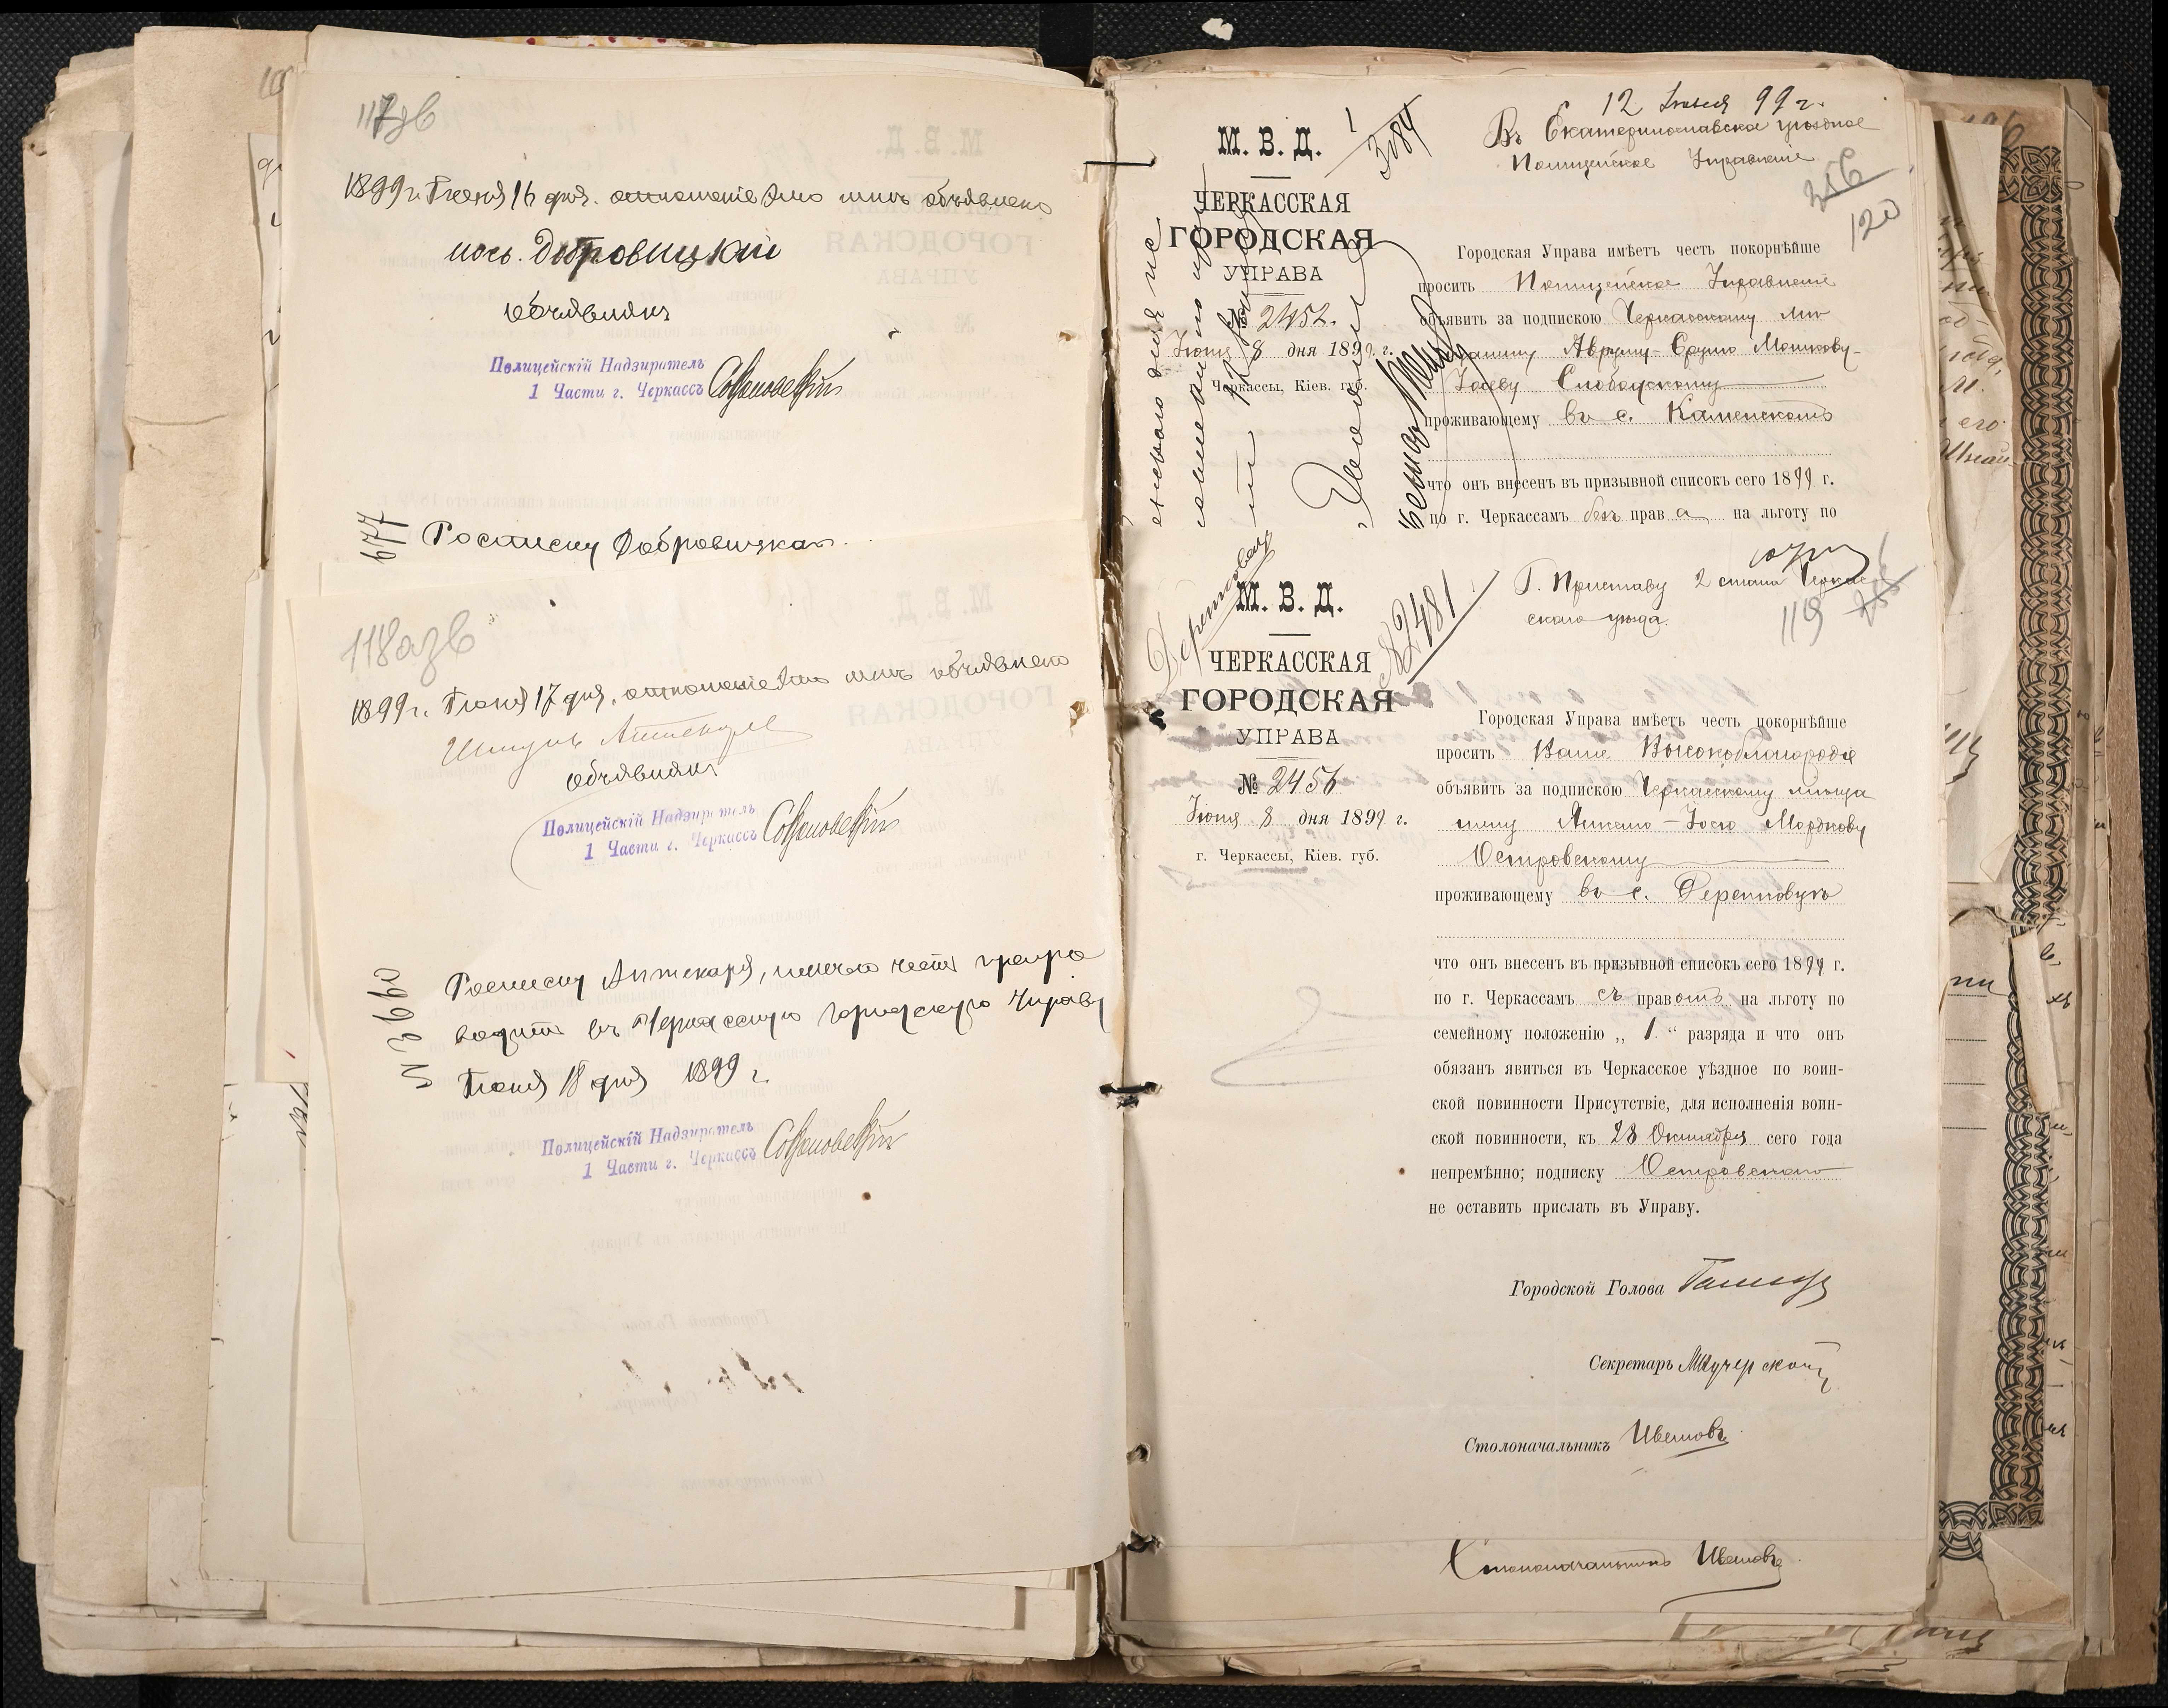 117 зв
1899 г. Июня 16 дня. отношение это мнѣ объявлено
іось. Добровицкій
объявилъ
Полицейскій Надзиратель
1 Части г. Черкассъ
677
Росписку Добровицкаго
118 а зв
1899 г. Июня 17 дня. отношение это мнѣ объявлено
объявилъ
Полицейскій Надзиратель
1 Части г. Черкассъ
№ 3660
Росписку Аптекаря, имѣю честь препро
водить въ Черкасскую Городскую Управу
Июня 18 дня 1899 г.
Полицейскій Надзиратель
1 Части г. Черкассъ
12 99 г.
3084
М. В. Д.
ЧЕРКАССКАЯ
ГОРОДСКАЯ
УПРАВА
№ 2452.
Іюня 8 дня 1899 г.
г. Черкассы, Кіев. губ.
Въ Екатеринославское уѣздное
Полицейское Управленіе
256
120
Городская Управа имѣетъ честь покорнѣйше
просить Полицейское Управленіе
объявить за подпискою Черкасскому мѣ-
щанину Авруму-Сруло Мошкову-
Іосеву Слободскому
проживающему въ с. Каменскомъ
что онъ внесенъ въ призывной списокъ сего 1899 г.
по г. Черкассамъ безъ права на льготу по
М. В. Д.
ЧЕРКАССКАЯ
ГОРОДСКАЯ
УПРАВА
№ 2456
Іюня 8 дня 1899 г.
г. Черкассы, Кіев. губ.
№2481
Г. Приставу 2 стана Черкас-
скаго уѣзда.
119
Городская Управа имѣетъ честь покорнѣйше
просить Ваше Высокоблагородіе
объявить за подпискою Черкасскому мѣща
нину Анкелю-Іосю Мордкову
Островскому
проживающему въ с. Деренковцѣ
что онъ внесенъ въ призывной списокъ сего 1899 г.
по г. Черкассамъ съ правомъ на льготу по
семейному положенію „ 1. “ разряда и что онъ
обязанъ явиться въ Черкасское уѣздное по воин-
ской повинности Присутствіе, для исполненія воин-
ской повинности, къ 28 Октября сего года
непремѣнно; подписку Островскаго
не оставить прислать въ Управу.
Городской Голова
Секретарь
Столоначальникъ Ивановъ
Столоначальникъ Ивановъ